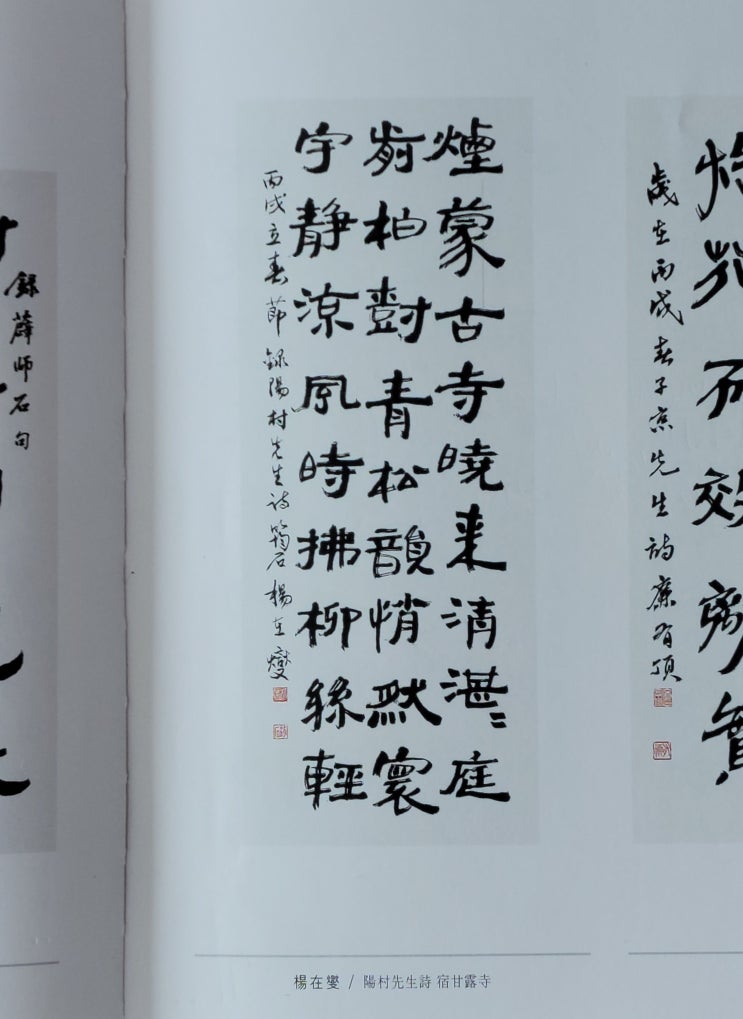 歲在丙戌春子京先生詩
煙蒙古寺曉来清湛〻庭
前柏對青松韻悄然寰
宇静凉風時拂柳絲輕
丙戌立春節錄陽村先生詩筠石楊在燮
錄薛師石句
楊在燮 / 陽村先生詩 宿甘露寺